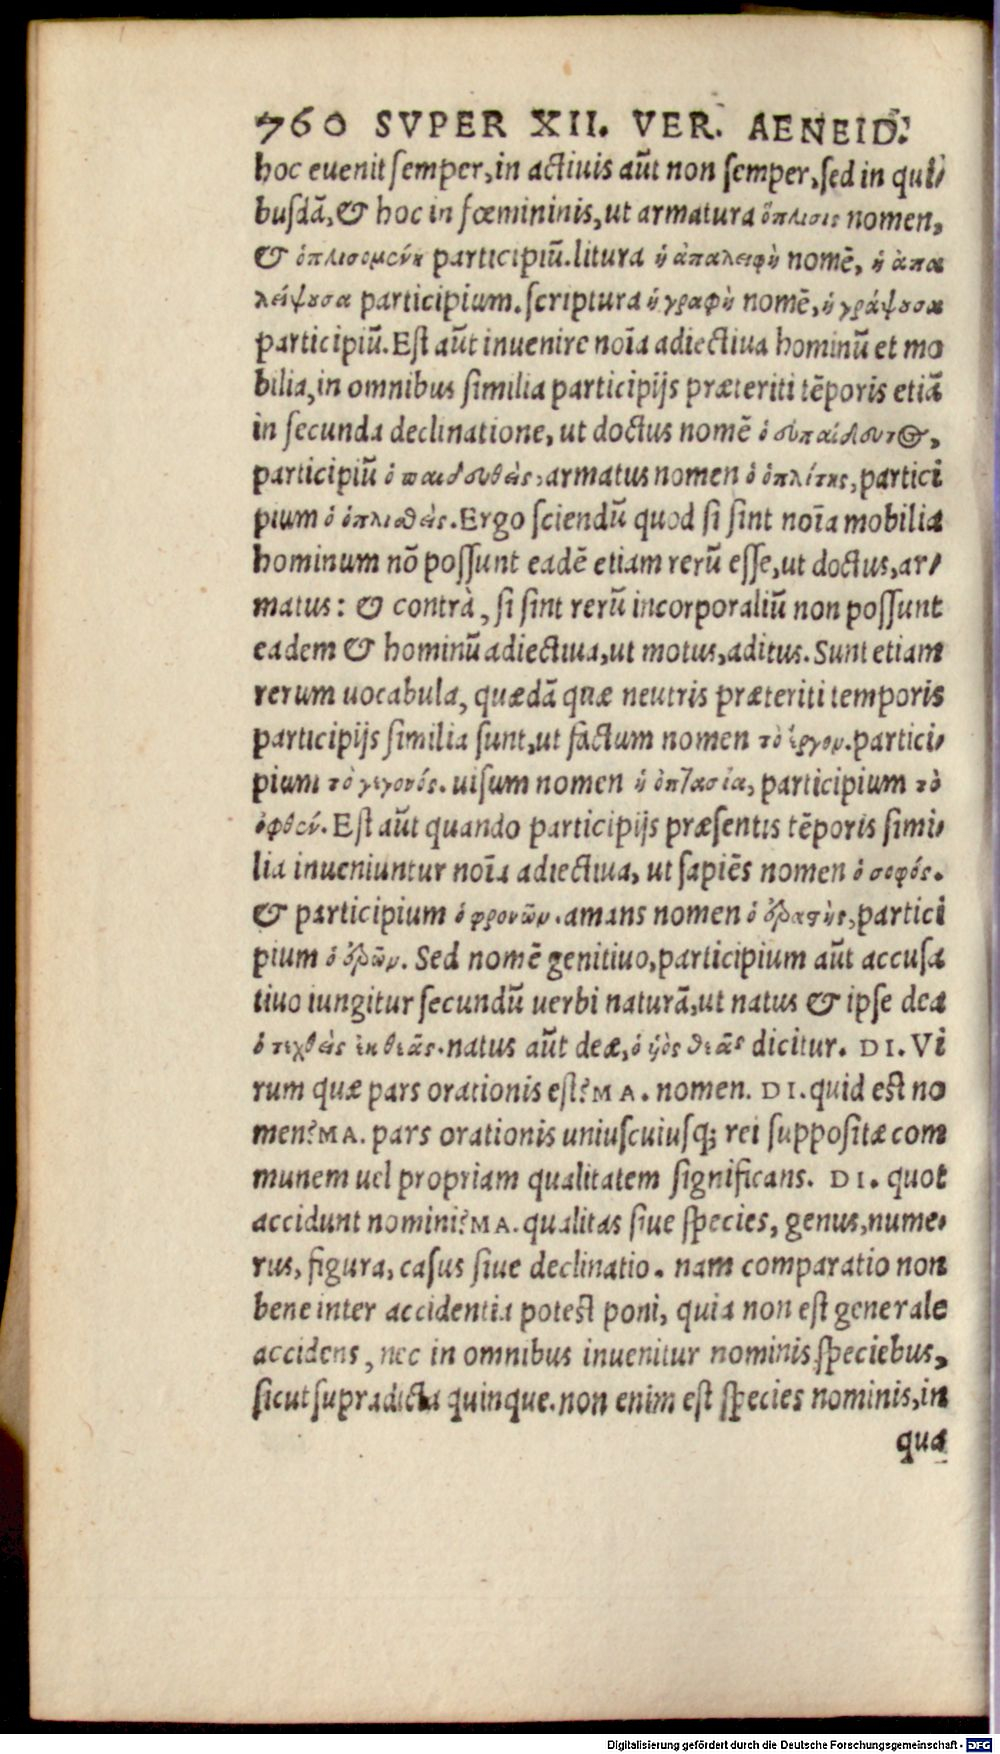 760 SVPER XII. VER. AENEID.
hoc euenit semper, in actiuis aũt non semper, sed in qui/
busdã, & hoc in fœmininis, ut armatura ὅπλισις nomen,
& ὁπλισομένη participiũ. litura ἡ ἀπαλειφὴ nomẽ, ἡ ἀπα
λείψουσα participium. scriptura ἡ γραφὴ nomẽ, ἡ γράψουσα
participiũ. Est aũt inuenire noĩa adiectiua hominũ et mo
bilia, in omnibus similia participijs præteriti tẽporis etiã
in secunda declinatione, ut doctus nomẽ ὁ εὐπαίδευτος,
participiũ ὁ παιδευθεὶς, armatus nomen ὁ ὁπλίτης, partici
pium ὁ ὁπλισθεὶς. Ergo sciendũ quod si sint noĩa mobilia
hominum nõ possunt eadẽ etiam rerũ esse, ut doctus, ar/
matus: & contrà, si sint rerũ incorporaliũ non possunt
eadem & hominũ adiectiua, ut motus, aditus. Sunt etiam
rerum uocabula, quædã quæ neutris præteriti temporis
participijs similia sunt, ut factum nomen τὸ ἔργον. partici/
pium τὸ γεγονός. uisum nomen ἡ ὀπτασία, participium τὸ
ὀφθέν. Est aũt quando participijs præsentis tẽporis simi/
lia inueniuntur noĩa adiectiua, ut sapiẽs nomen ὁ σοφός.
& participium ὁ φρονῶν. amans nomen ὁ ἐραστὴς, partici
pium ὁ ἐρῶν. Sed nomẽ genitiuo, participium aũt accusa
tiuo iungitur secundũ uerbi naturã, ut natus & ipse dea
ὁ τεχθεὶς ἐκ θεᾶς. natus aũt deæ, ὁ ὑὸς θεᾶς dicitur. DI. Vi
rum quæ pars orationis est? MA. nomen. DI. quid est no
men? MA. pars orationis uniuscuiusq; rei suppositæ com
munem uel propriam qualitatem significans. DI. quot
accidunt nomini? MA. qualitas siue species, genus, nume/
rus, figura, casus siue declinatio. nam comparatio non
bene inter accidentia potest poni, quia non est generale
accidens, nec in omnibus inuenitur nominis speciebus,
sicut supradicta quinque. non enim est species nominis, in
qua
Digitalisierung gefördert durch die Deutsche Forschungsgemeinschaft - DFG